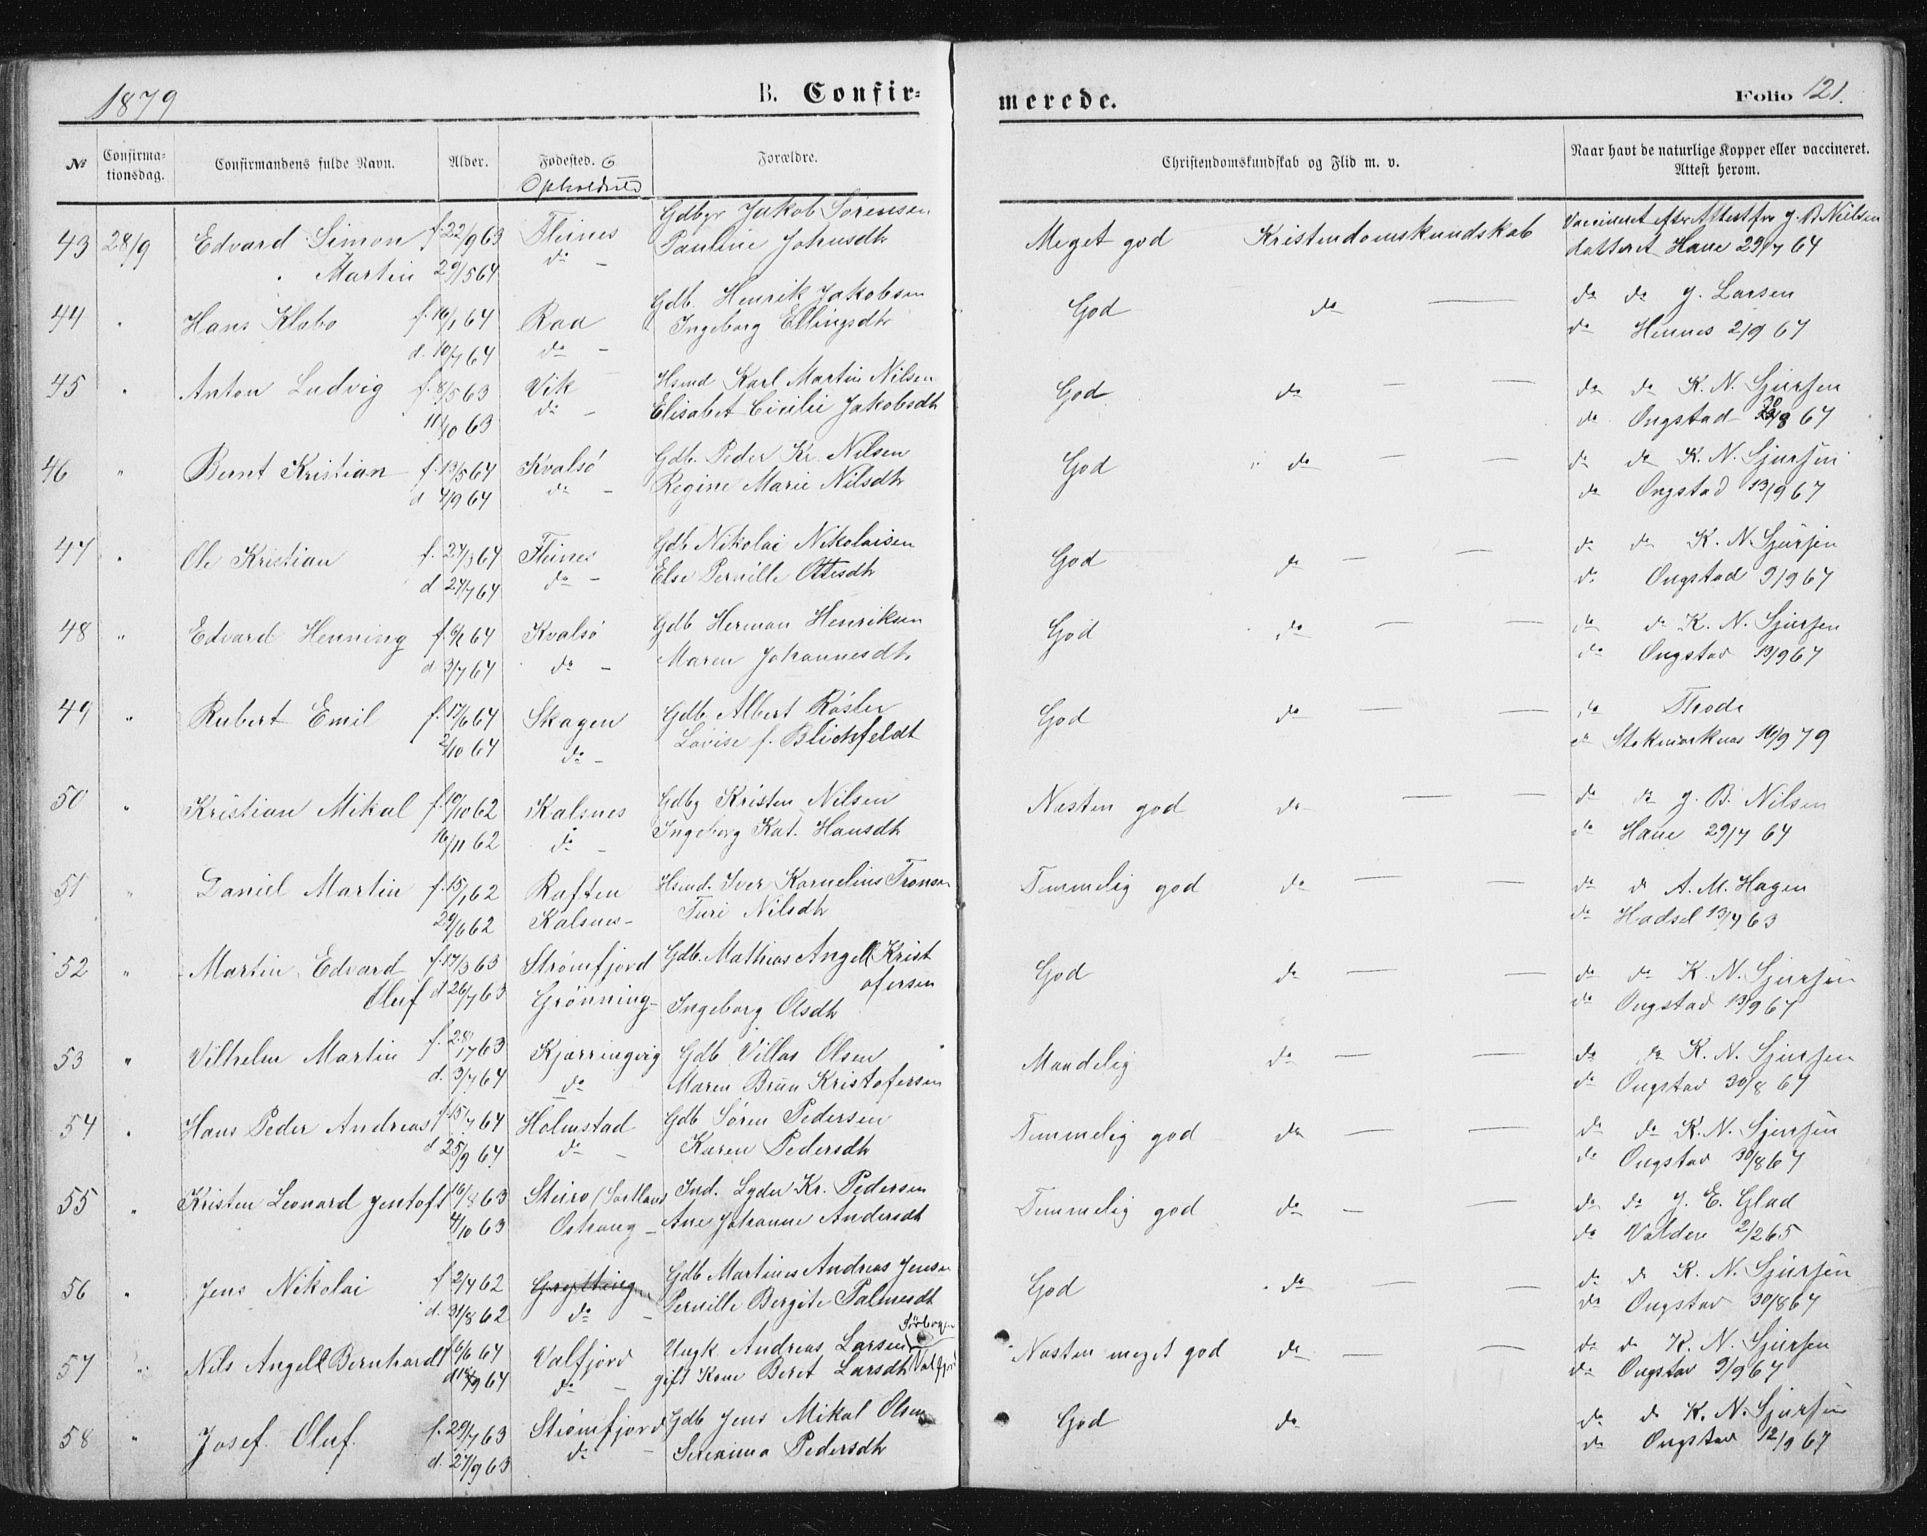 1879 B. Confir- merede. Folio 121.
№ Confirmationsdag. Confirmandens fulde Navn. Alder. Fødested. o Opholdsted Forældre. Christendomskundskab og Flid m. v. Naar havt de naturlige Kopper eller vaccineret. Attest herom.
43 28/9 Edvard Simon f. 22/9 63 Fleines Gdbgr Jakob Sørensen Meget god Kristendomskundskab Vaccineret efter Attest fra J. B. Nilsen
" Martin 29/5 64 do - Pauline Johnsdtr datteret Hane 29/7 64
44 " Hans Klabo f. 16/1 64 Raa Gdb. Henrik Jakobsen God do — do do J. Larsen
d. 10/7 64 do - Ingeborg Ellingsdtr do Hennes 2/9 67
45 " Anton Ludvig f. 8/5 63 Vik Hsmd Karl Martin Nilsen God do — — do do K. N. Sjursen
11/10 63 do - Elisabet Cicilie Jakobsdtr do Ongstad 30/8 67
46 " Bernt Kristian f. 13/5 64 Kvalsø Gdb. Peder Kr. Nilsen God " do — — do do K. N. Sjursen
d 4/9 64 do - Regine Marie Nilsdtr do Ongstad 13/9 67
47 " Ole Kristian f. 27/3 64 Fleines Gdb Nikolai Nikolaisen God do — — do do K. N. Sjursen
d 24/7 64 do - Else Pernille Ottesdtr do Ongstad 9/9 67
48 " Edvard Henning f. 9/2 64 Kvalsø Gdb Herman Henriksen God do — — do do K. N. Sjursen
d 3/7 64 do - Maren Johannesdtr do Ongstad 13/9 67
49 " Rubert Emil f. 17/6 64 Skagen Gdb. Albert Røsler God do — — do Thode
2/10 64 do - Lovise f. Blichfeldt do Stokmarknæs 16/9 79
50 " Kristian Mikal f. 19/10 62 Kalsnes Gdbg Kristen Nilsen Næsten god do — — do do J. B. Nilsen
16/11 62 do - Ingeborg Kat. Hansdtr do Hane 29/7 64
51 " Daniel Martin f. 15/1 62 Raften Hsmd. Iver Kornelius Tronsen Temmelig god do — — do do A. M. Hagen
29/6 62 Kalsnes- Turi Nilsdtr do Hadsel 13/7 63
52 " Martin Edvard f. 17/3 63 Strømfjord Gdb. Mathias Angell Krist God do — — do do K. N. Sjursen
Oluf d 26/7 63 Grønning- ofersen Ingeborg Olsdtr do Ongstad 13/9 67
53 " Vilhelm Martin f. 28/1763 Kjærringvig Gdb Villas Olsen Maadelig do — — do do K. N. Sjursen
d. 3/7 64 do Maren Brun Kristofersen do Ongstad 30/8 67
54 " Hans Peder Andreas f 15/7 64 Holmstad Gdb Søren Pedersen Temmelig god do — — do do K. N. Sjursen
d 25/9 64 do - Karen Pedersdtr do Ongstad 30/8 67
55 " Kristen Leonard Jentoft 16/8 63 Steiro /Sortland Ind. Lyder Kr. Pedersen Temmelig god do — — do do J. E. Glad
4/10 63 - Ane Johanne Andersdtr do 2/2 65
56 " Jens Nikolai f 2/7 62 Gdb Martinus Andreas Jensen God " do — — do do K. N. Sjursen
d. 31/8 62 do - Pernille Bergite Palmesdtr do Ongstad 30/8 67
57 " Nils Angell Bernhardt f 6/6 64 Valfjord Ungk Andreas Larsen Næsten meget god do — — do do K. N. Sjursen
d 9 64 do - gift Kone Beret Larsdtr Valfjord do Ongstad 9/9 67
58 " Josef Oluf f. 29/7 63 Strømfjord Gdb Jens Mikal Olsen God do do do K. N. Sjursen
d. 27/9 63 do - Pedersdtr do Ongstad 12/9 67